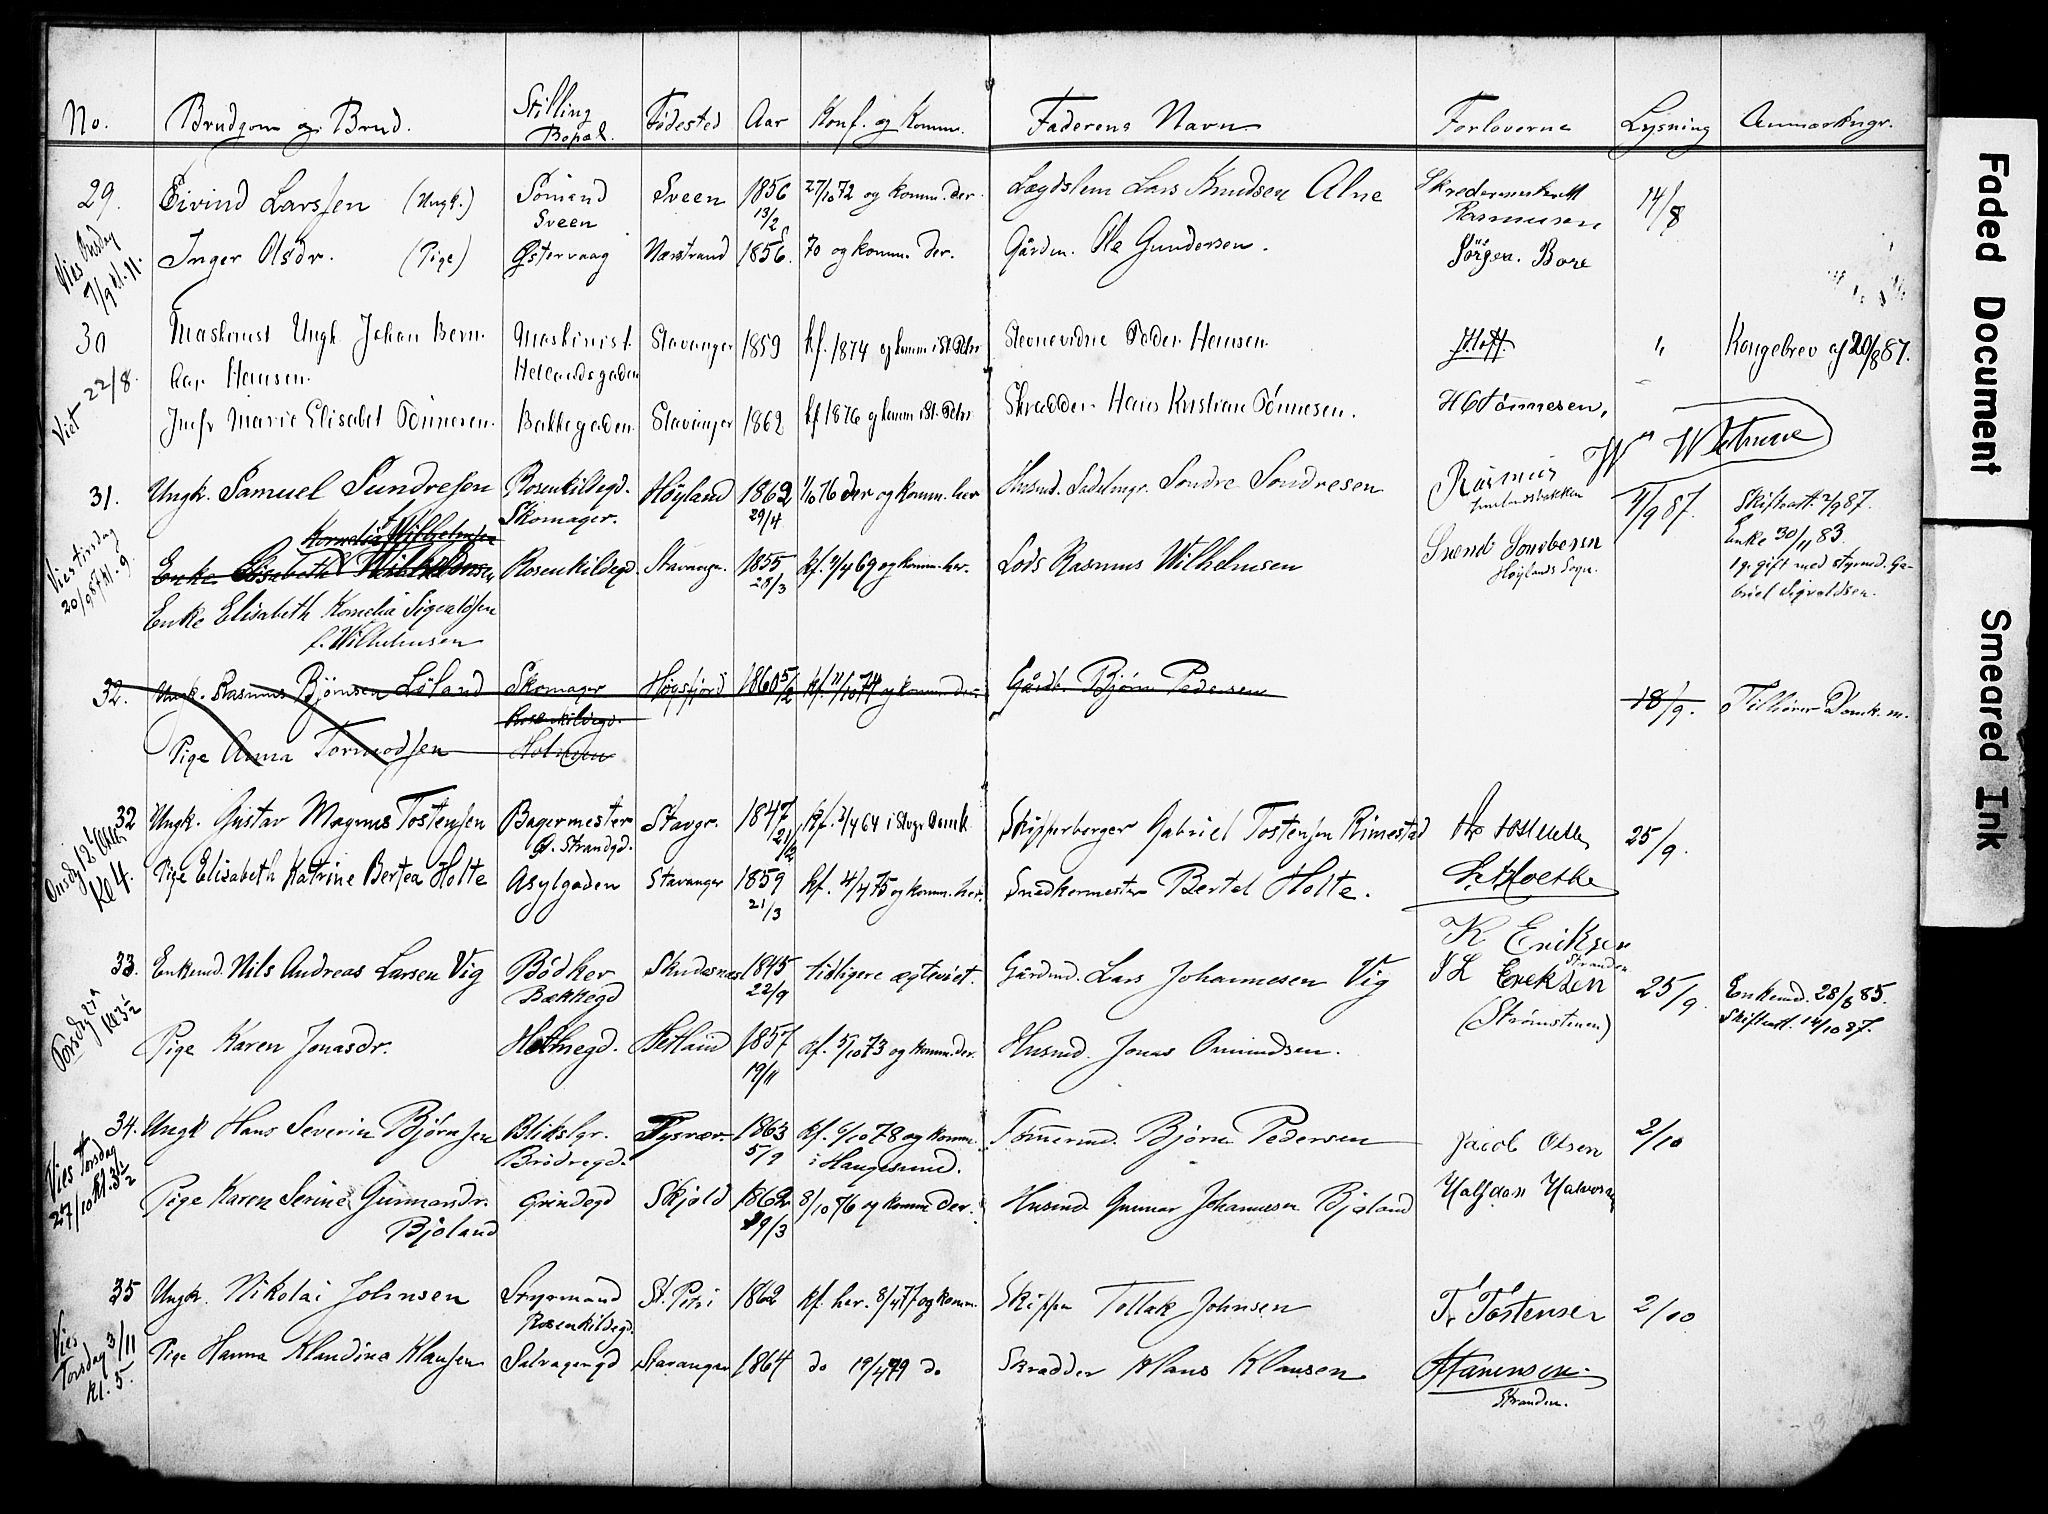 No. Brudgom og Brud. Stilling Bopæl. Fødested Aar Konf. og Komm. Faderens Navn Forloverne Lysning Anmærkngr.
29. Eivind Larssen (Ungk.) Sømand Sveen Sveen 1856 13/2 27/10 72 og komm. der. Lægdslem Lars Knudsen Alne Rasmusen 14/8
Vies Onsdag 7/9 kl. 11.
Inger Olsdr. (Pige) Østervaag Nærstrand 1856. 70 og komm. der. Gårdm. Ole Gundersen. Jørgen Bore
30 Maskinist Ungk. Johan Bern- Maskinist Stavanger 1859 kf. 1874 og komm i St. Petri Peder Hansen. Hoff. " Kongebrev af 20/8 87.
Viet 22/8.
har Hansen. Hetlandsgaden
Jmfr Marie Elisabet Tönnesen. Bakkegaden Stavanger 1862 kf 1876 og komm i St. Petri Skrædder Hans Kristian Tönnesen. H C Tönnesen,
31. Ungk. Samuel Sundresen Rosenkildegd. Skomager. Høyland 1862 29/4 1/10 76 der og komm. her Husmd. Sadelmgr. Sondre Sondresen Rasmus 4/9 87. Skifteatt. 2/9 87.
Vies tirsdag 20/9 87 kl. 9.
Kornelia Wilhelmsen
Enke Elisabeth Rosenkildegd. Stavanger. 1855 28/3 Kf. 4/4 69 og komm. her. Lods Rasmus Wilhelmsen Svend Sondresen Høylands Sogn. Enke 30/11 83.
1g. gift med styrmd. Ga-
briel Sigvaldsen.
Enke Elisabeth Kornelia Sigvaldsen
f. Wilhelmsen
32. Ungk. Rasmus Bjørnsen Löland Skomager Rosenkildegd. Høgsfjord 1860 5/2 kf. 11/10 74 og komm. der. Gårdb. Bjørn Pedersen 18/9. Tilhører Domk. m.
Pige Anna Tormodsen Holmen
32 Ungk. Gustav Magnus Tostensen Bagermester Ø. Strandgd. Stavgr. 1847 21/12 Kf. 3/4 64 i Stvgr Domk Skipperborger Gabriel Tostensen Rimestad 25/9.
Onsdag 12te Kl 4.
Pige Elisabeth Katrine Bertea Holte Asylgaden Stavanger 1859 21/3 kf. 4/4 75 og komm. her. Snedkermester Bertel Holte.
K Eriksen Stranden
33. Enkemd. Nils Andreas Larsen Vig Bødker Bækkegd Skudesnæs 1845 22/9 tidligere ægteviet. Gårdmd. Lars Johannesen Vig L Eriksen (Strømstenen) 25/9. Enkemd. 28/8 85.
Skifteatt. 14/10 87.
Torsdag 27de kl 3 1/2
Pige Karen Jonasdr. Holmegd. Hetland 1857 19/11 kf. 5/10 73 og komm. der. Husmd. Jonas Omundsen.
34. Ungk Hans Severin Bjørnsen Blikslgr. Brødregd. Tysvær 1863 5/9 kf. 6/10 78 og komm. i Haugesund. Tømmermd. Bjørn Pedersen Jacob Olsen 2/10
Vies Torsdag 27/10 kl. 3 1/2
Pige Karen Serine Gunnarsdr. Bjoland Grindegd Skjold 1862 29/3 8/10 76 og komm der. Husmd Gunnar Johannesen Bjoland Halfdan Halvorsen
35 Ungk. Nikolai Johnsen Styrmand Rosenkildegd. St. Petri 1862 kf. her. 8/4 77 og komm. Skipper Tollak Johnsen T. Tostensen 2/10
Vies Torsdag 3/11 kl. 5.
Pige Hanna Klandine Klausen Salvagergd Stavanger 1864 do 19/4 79 do Skrædder Klaus Klausen Stranden.
Faded Document
Smeared Ink